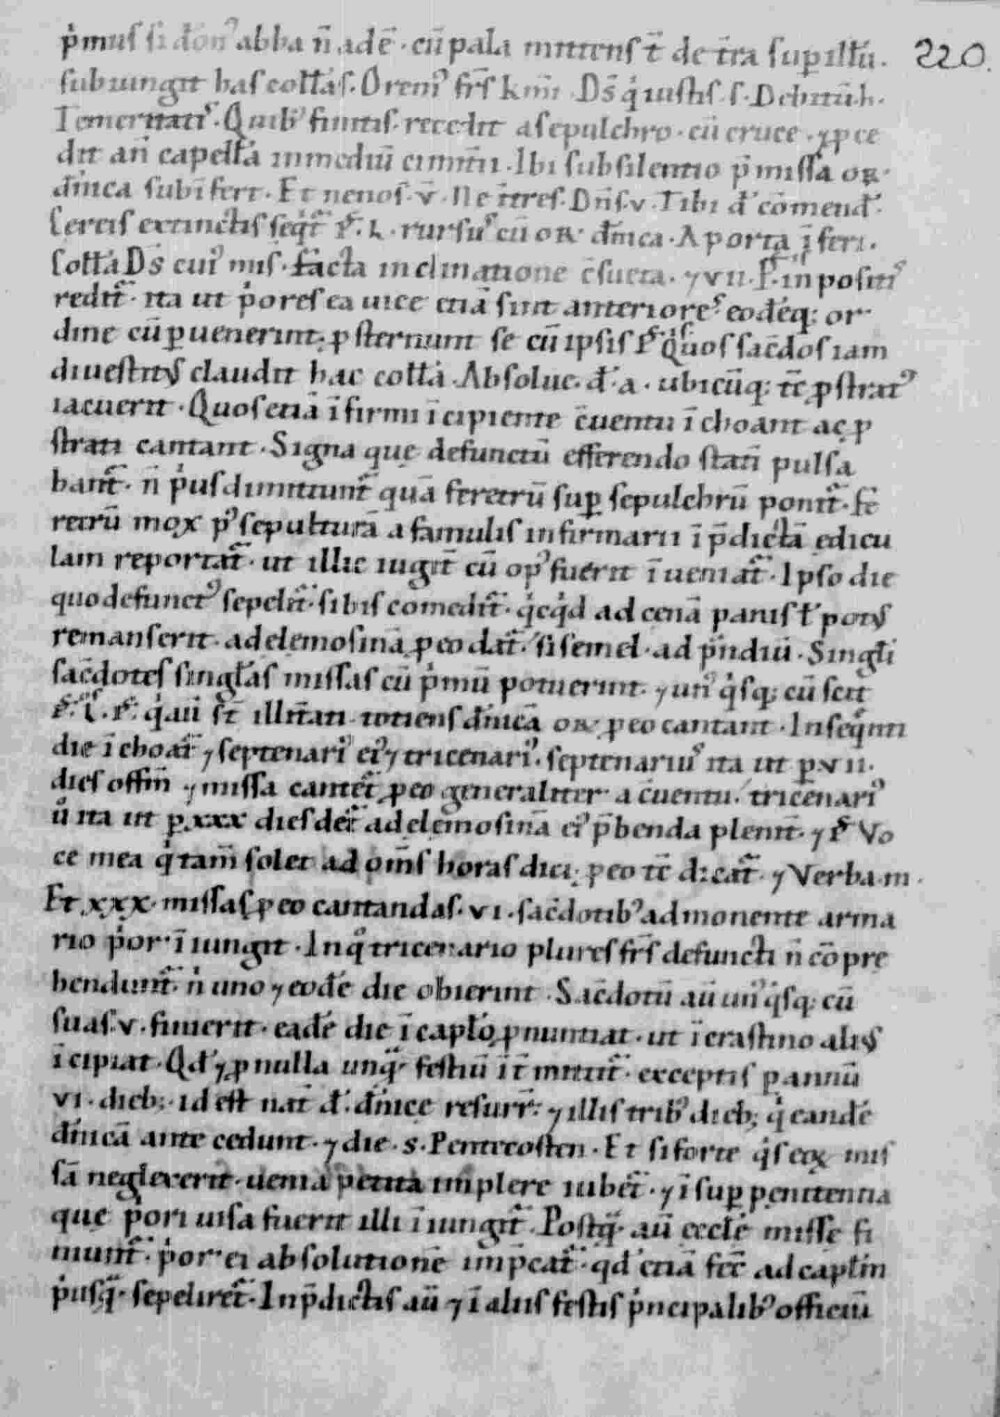 p̾mus si dōn᾽ abba n̄ adē · cū pala mittens t̄ de tr̄a sup illū · 220.
subiungit has coll̄as · Orem᾽ fr̄s km̄i · D̄s q̾ iustis · s · Debitū · h ·
Temeritatis · Quib᾽ finitis · recedit a sepulchro · cū cruce · ⁊ p̱ce
dit an̄ capellā in mediū cimit̄ii · Ibi sub silentio p̄missa or̄ ·
dn̄ica subīfert · Et ne nos · v̄ · Ne t̄res · Dn̄s · v · Tibi d̄ cōmend̄ ·
Certis extinctis seq̄t᷑ p̄s · l · rursus cū or̄ · dn̄ica · A porta īferi ·
Coll̄a D̄s cui᾽ mis · facta inclinatione c̄sueta · ⁊ vii · p̄s · inpositis
redit᷑ · ita ut p̾ores ea uice etiā sint anteriores eodēq; or
dine cū puenerint · p̱sternunt se cū ipsis p̄s · Quos sac̄dos iam
diuestitus claudit hac coll̄a · Absolue · d̄ · a · ubicūq; tc̄ p̱strat᾽
iacuerit · Quos etiā īfirmi īcipiente c̄uentu īchoant ac p̱
strati cantant · Signa quę defunctū efferendo stati᷑ pulsa
bant᷑ · n̄ p̾us dimittunt᷑ quā feretrū sup sepulchrū ponit᷑ · fe
retrū mox p᾽ sepulturā a famulis infirmarii ī p̄dictā ędicu
lam reportat᷑ · ut illic iugit᷑ cū op᾽ fuerit īueniat᷑ · Ipso die
quo defunct᾽ sepelit᷑ · si bis comedit᷑ · q̾cq̾d ad cenā panis ł potus
remanserit · ad elęmosinā p̱ eo dat᷑ · si semel · ad p̄ndiū · Singl̄i
sac̄dotes singl̄as missas cū p̾mū potuerint · ⁊ un᾽ q̾sq; cū scit
p̄s · l · p̄s · q̾ aū st̄ illit᷑ati · totiens dn̄icā or̄ · p̱ eo cantant · In seq̄nti
die īchoat᷑ ⁊ septenari᾽ ei᾽ ⁊ tricenari᾽ · septenari᾽ ita ut p · vii ·
dies offm̄ ⁊ missa cantet᷑ p̱ eo generaliter a c̄uentu · tricenari᾽
ů ita ut p · xxx dies det᷑ ad elęmosinā ei᾽ p̄benda plenit᷑ · ⁊ p̄s Vo
ce mea q̾ tam̄ solet ad om̄s horas dici · p̱ eo tc̄ dicat᷑ · ⁊ Verba · m ·
Et · xxx · missas p̱ eo cantandas · vi · sac̄dotib᾽ admonente arma
rio p̾or īiungit · In q̊ tricenario plures fr̄s defuncti n̄ cōpre
hendunt᷑ · n̾ uno ⁊ eodē die obierint · Sac̄dotū aū un᾽ q̾sq; cū
suas · v · finierit · eadē die ī capl̄o p̱nuntiat · ut ī crastino alius
īcipiat · Qd̄ ⁊ p̱ nulla unq̄ · festiū īt᷑mittit᷑ · exceptis p annū
vi · dieb; · id est nat̄ d̄ · dn̄icę resurr̄ · ⁊ illis trib᾽ dieb; q̾ eandē
dn̄icā antecedunt · ⁊ die · s · Pentecosten · Et si forte q̾s eoꝝ mis
sā neglexerit · uenia petita implere iubet᷑ · ⁊ īsup pęnitentia
quę p̾ori uisa fuerit illi īiungit᷑ · Postq̄ · aū ęccl̄ę missę fi
niunt᷑ · p̾or · ei absolutionē imp̄cat᷑ · qd̄ etiā fec̄ ad capl̄m
p̾usq̄ · sepeliret᷑ · In p̄dictis aū ⁊ ī aliis festis p̾ncipalib᾽ officiū